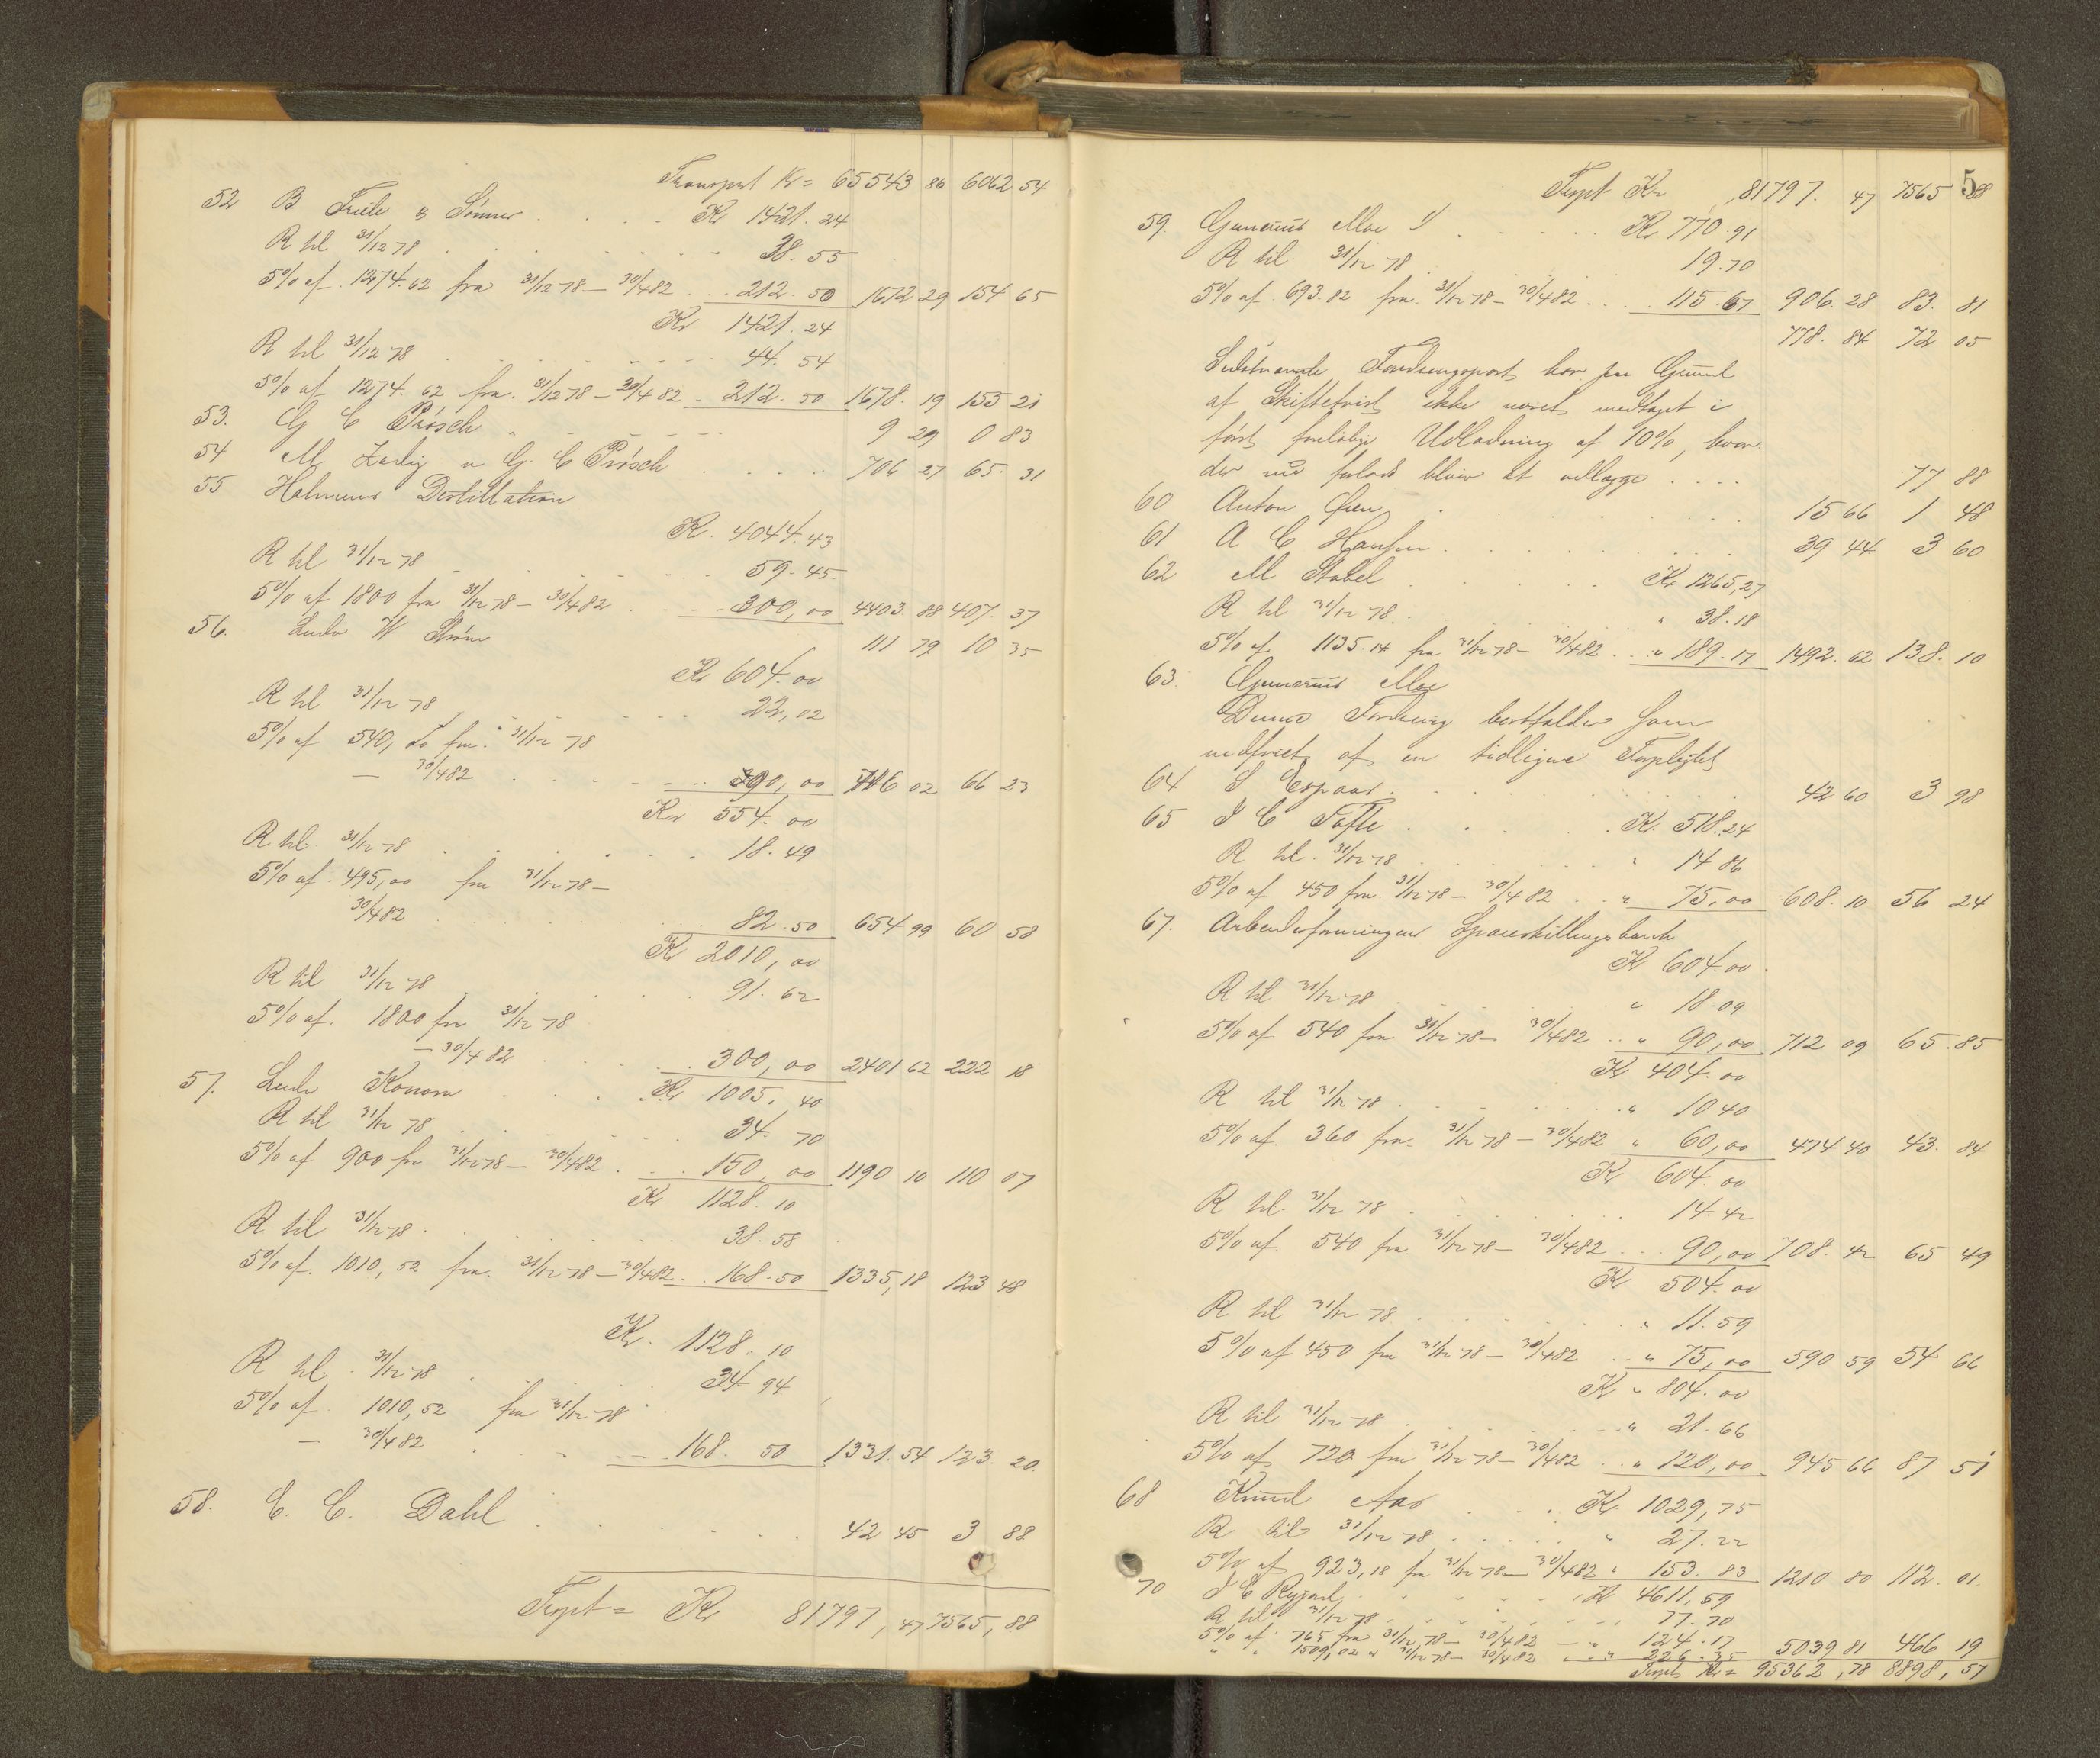 Transport Kr = 65543 86 6062 54
52 B Friele & Sönner . . . . Kr 1421. 24
R til 31/12 78 . . . . 38. 55
5% af 1274. 62 fra 31/12 78 – 30/4 82 . . 212. 50 1672 29 154 65
Kr 1421. 24
R til 31/12 78 . . . . 44. 54
5% af 1274. 62 fra 31/12 78 – 30/4 82 . 212. 50 1678. 19 155 21
53. G C Prösch . . . . 9 29 0 83
54 M G. C Prösch . . . . 706 27 65. 31
55 Holmens Destillation
Kr. 4044. 43
R til 31/12 78 . . . . 59. 45
5% af 1800 fra 31/12 78 – 30/4 82 . . 300, 00 4403. 88 407. 37
56. Ludv W Ström 111 79 10 35
Kr 604. 00
R til 31/12 78 . . . . 22, 02
5% af 540, fra 31/12 78
— 30/4 82 . . . . 90, 00 716 02 66 23
Kr 554. 00
R til 31/12 78 . . . . 18. 49
5% af 495, 00 fra 31/12 78 –
30/4 82 . . 82. 50 654 99 60 58
Kr 2010, 00
R til 31/12 78 . . . . 91. 62
5% af 1800 fra 31/12 78
— 30/4 82 . . . . 300, 00 2401 62 222 18
57. Ludv . . . Kr 1005. 40
R til 31/12 78 . . . . 34. 70
5% af 900 fra 31/12 78 – 30/4 82 . . . 150, 00 1190 10 110 07
Kr 1128. 10
R til 31/12 78 . . . . 38. 58
5% af 1010, 52 fra 31/12 78 – 30/4 82 . . 168. 50 1335, 18 123 48
Kr. 1128. 10
R til 31/12 78 . . . . 34. 94
5% af 1010, 52 fra 31/12 78
— 30/4 82 . . . . 168. 50 1331. 54 123. 20
58. C. C. Dahl . . . . 42 45 3 88
Trpt = Kr 81797, 47 7565, 88
5
Trspt Kr 81797. 47 7565 88
59. Gunerius Moe . . . . Kr 770. 91
R til 31/12 78 . . . . 19. 70
5% af 693. 82 fra 31/12 78 – 30/4 82 . . . 115. 67 906. 28 83. 81
778. 84 72 05
Sidstnævnte Fordringspost har paa Grund
af Skiftetvist ikke været medtaget i
först forelöbige Udlodning af 10%, hvor
der nu forlods bliver at udlægge . . . . 77 88
60 Anton . . . . 15 66 1 48
61 A C Hansen . . . . 39 44 3 60
62 M Stabel . . . . Kr 1265, 27
R til 31/12 78 . . . . " 38. 18
5% af 1135. 14 fra 31/12 78 – 30/4 82 . . " 189. 17 1492. 62 138. 10
63. Gunerius Moe
Denne Fordring bortfalder som
indfriet af en tidligere Forpligtet
64 S . . . . 42 60 3 98
65 J C Tofte . . . . Kr. 518. 24
R til 31/12 78 . . . . " 14 86
5% af 450 fra 31/12 78 – 30/4 82 . . " 75, 00 608. 10 56 24
67. Arbeiderforeningens Spareskillingsbank
Kr 604. 00
R til 31/12 78 . . . . " 18. 09
5% af 540 fra 31/12 78 – 30/4 82 . . " 90, 00 712 09 65. 85
Kr 404. 00
R til 31/12 78 . . . . " 10 40
5% af 360 fra 31/12 78 – 30/4 82 " 60, 00 474 40 43. 84
Kr 604. 00
R til 31/12 78 . . . . 14. 42
5% af 540 fra 31/12 78 – 30/4 82 . . . 90, 00 708. 42 65 49
Kr 504. 00
R til 31/12 78 . . . . " 11. 59
5% af 450 fra 31/12 78 – 30/4 82 . . " 75, 00 590 59 54 66
Kr " 804. 00
R til 31/12 78 . . . . " 21. 66
5% af 720 fra 31/12 78 – 30/4 82 . . " 120, 00 945 66 87 51
68 Knud Aas . . . Kr. 1029, 75
R til 31/12 78 . . . . " 27. 22
5% af 923, 18 fra 31/12 78 – 30/4 82 " 153. 83 1210 80 112. 01.
70 J C . . . . Kr 4611, 59
R til 31/12 78 . . . . 77. 70
5% af 765 fra 31/12 78 – 30/4 82 — " 124. 17
" " 1509, 02 " 31/12 78 – 30/4 82 . . " 226. 35 5039 81 466 19
Trspt Kr = 95362, 78 8898, 57